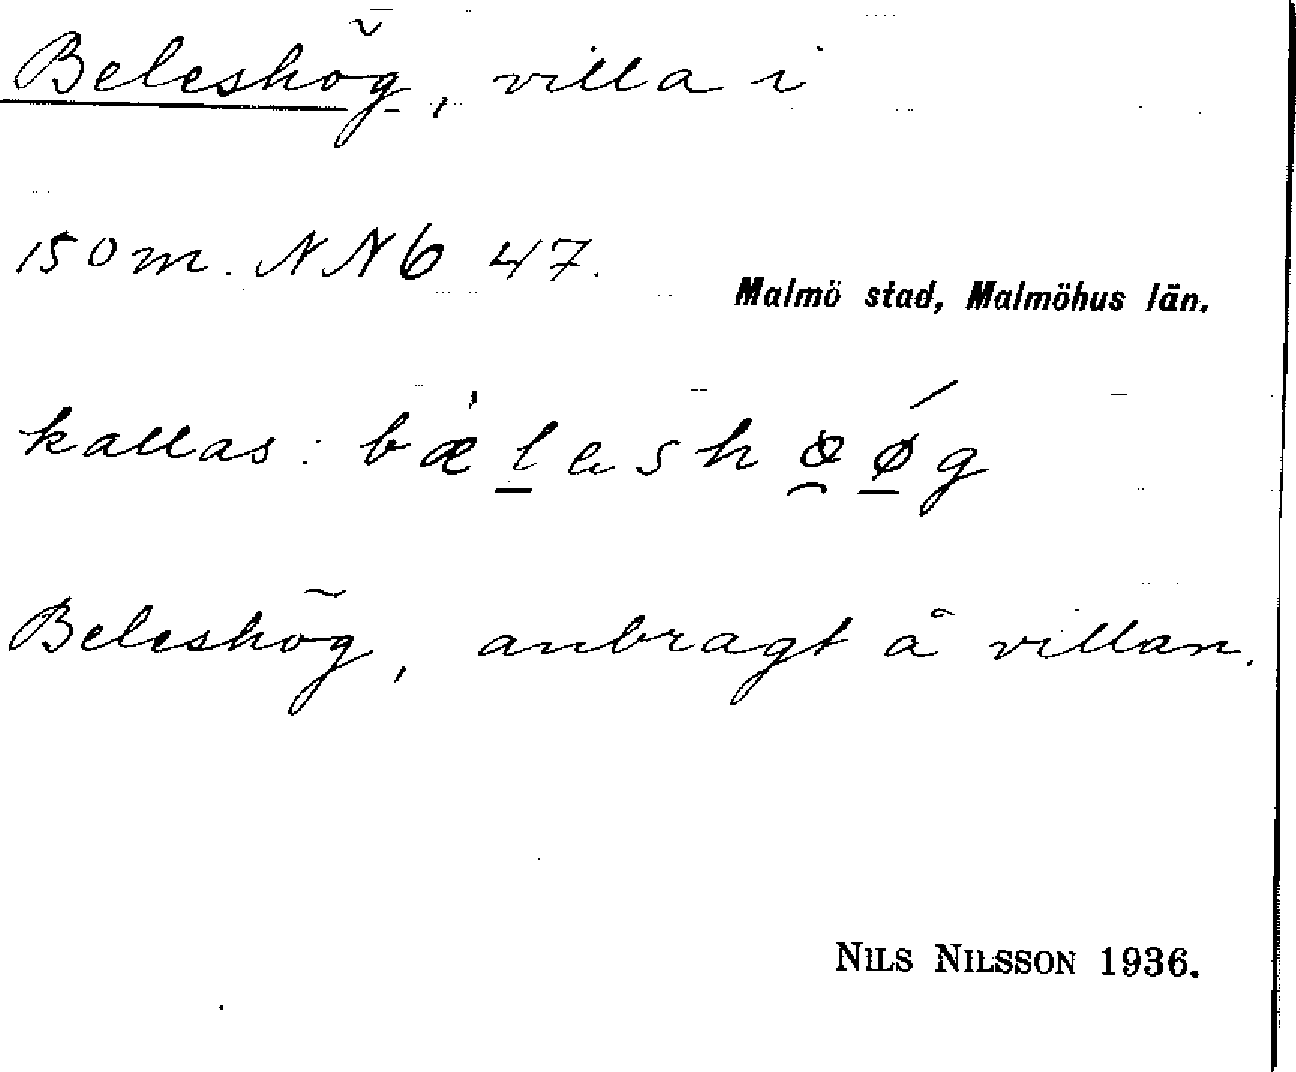 Beleshög, villa i
150 m. NNÖ 47.
Malmö stad, Malmöhus län.
kallas: bæ̍l̠ash
Beleshög, anbragt å villan.
NILS NILSSON 1936.